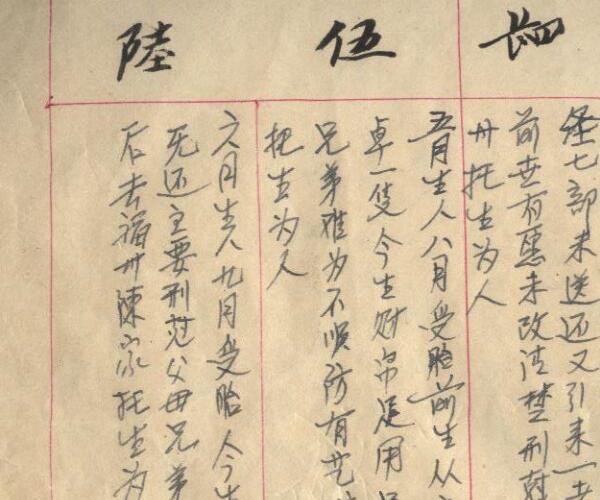 肆
经七部未送还又引来一
前世有愿未改法楚刑
州托生为人
伍
五月生人八月受胎前生从
卓一隻今生财帛足用
兄弟难为不顺防有艺
把生为人
陸
六月生人九月受胎今生
无还主要刑范父母兄弟
后去福州陳家托生为